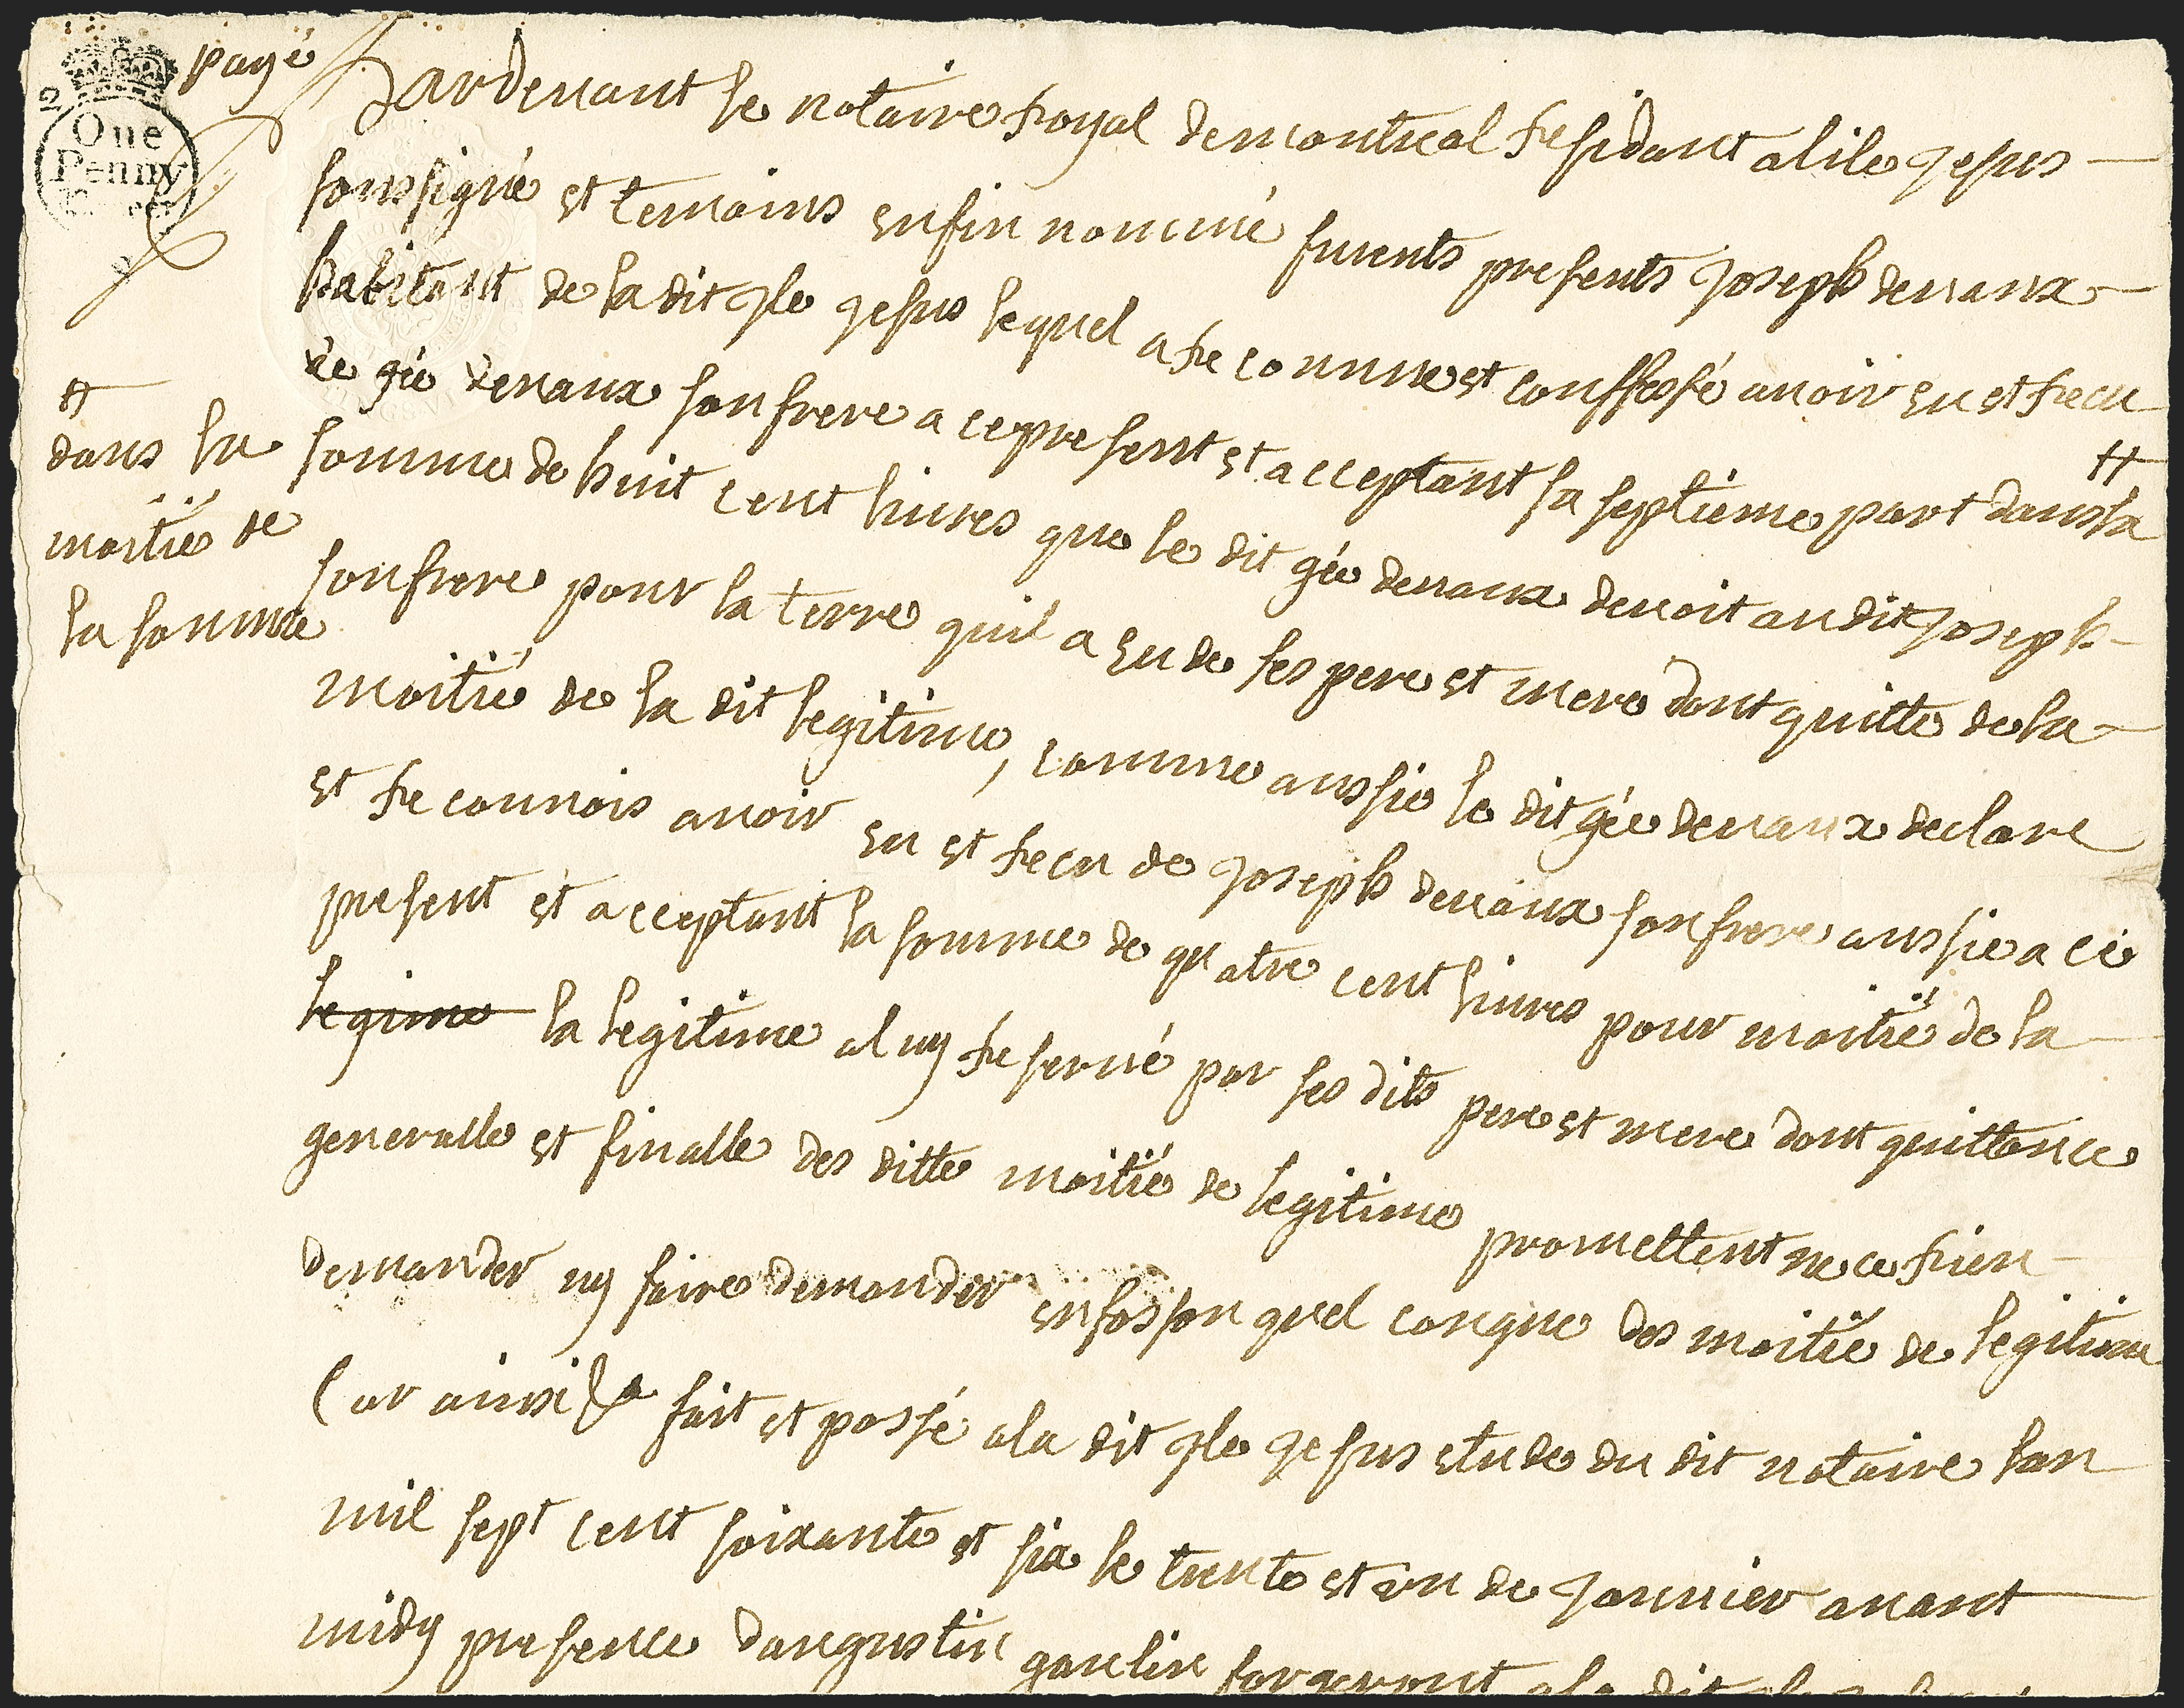 payé
2
One
Penny
Pardevant le notaire royal demontreal residant alile gesus
soussigné et temoins enfin nommé furents presents joseph devaux
habitant de la dit jle gesus lequel a reconnue et conffessé avoir eu et recu
de gée devaux son frere a ce present et acceptant sa septieme part dans la #
somme de huit cent livres que le dit gée devaux devoit au dit joseph
son frere pour la terre quil a eu de ses pere et mere dont quitte de la
moitié de la dit legitime, comme aussie le dit gée devaux declare
et reconnois avoir eu et recu de joseph devaux son frere aussie a ce
present et acceptant la somme de quatre cent livres pour moitié de la
legime la legitime a luy reservé par ses dits pere et mere dont quittence
generalle et finalle des ditte moitié de legitime promettent ne ce rien
demander ny faire demander en fosson quel conque des moitié de legitime
Car ainsi & fait et passé a la dit jle gesus etude du dit notaire lan
mil sept cent soixante et six le trente et un de janvier avant
midy presence daugustin gaulin forgeront a la dit
#
dans la
moitié de
la somme